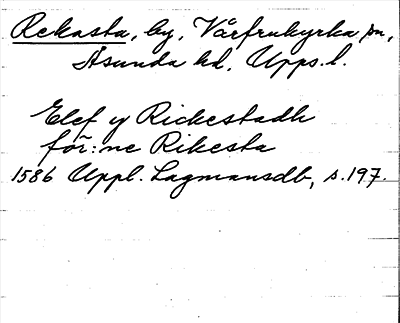 Rekasta, by, Vårfrukyrka sn,
Åsunda hd, Upps.l.
Elef y Rickestadh
för:ne Rikesta
1586 Uppl. Lagmansdb, s.197.